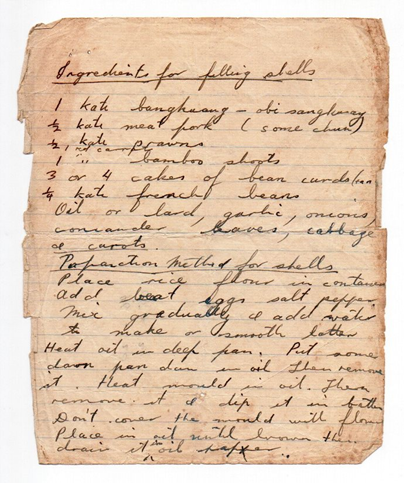 Ingredients for filling shells
1 kati bangkuang - obi sangkuay
½ kati meat pork (some chun)
½ kati prawns
1 " bamboo shoots
3 or 4 cakes of bean curds
¼ kati french beans
Oil or lard, garlic, onions,
coriander leaves, cabbage
& carots.
Preparaction Method for shells
Place rice flour in container
Add beat eggs salt pepper
Mix gradually & add water
to make or smooth latter
Heat oil in deep pan. Put some
down pan dun in oil Then remove
it Heat mould in oil. Then
remove it & dip it in better
Don't cover the mould with flour
Place in oil until brown then
drain it in oil